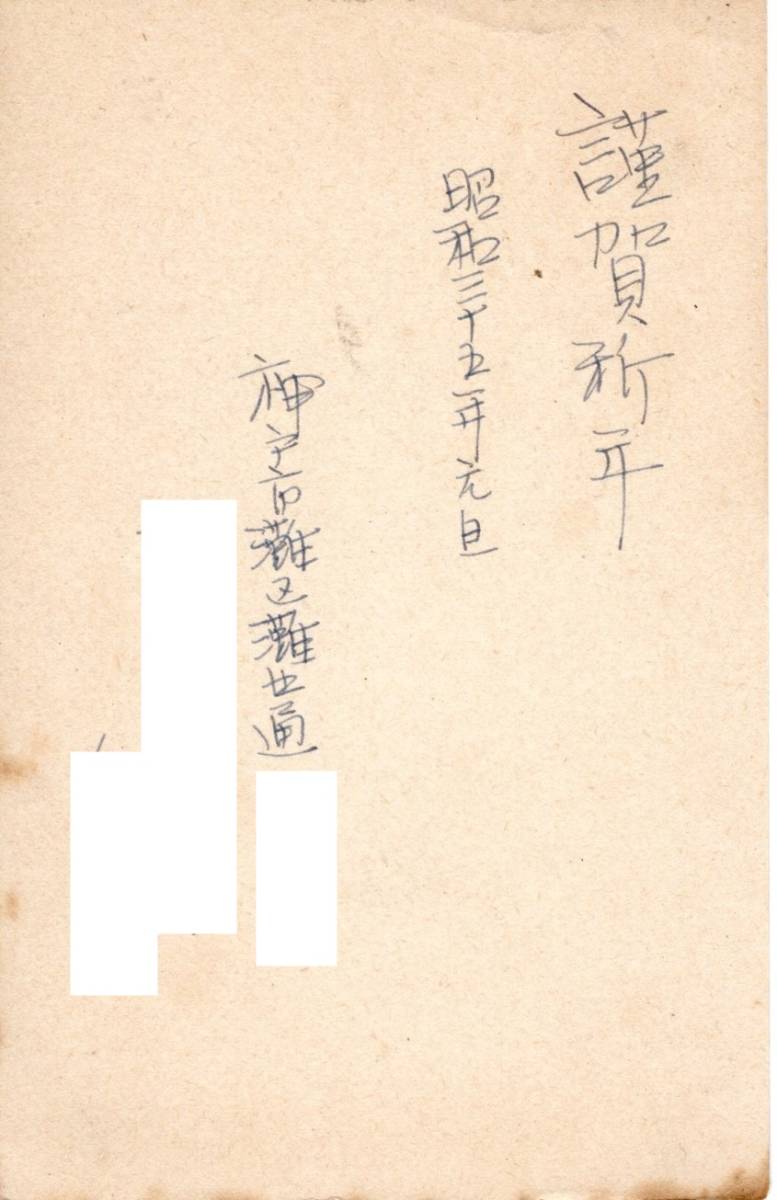 謹賀新年
昭和三十五年元旦
神戸市灘区灘北通